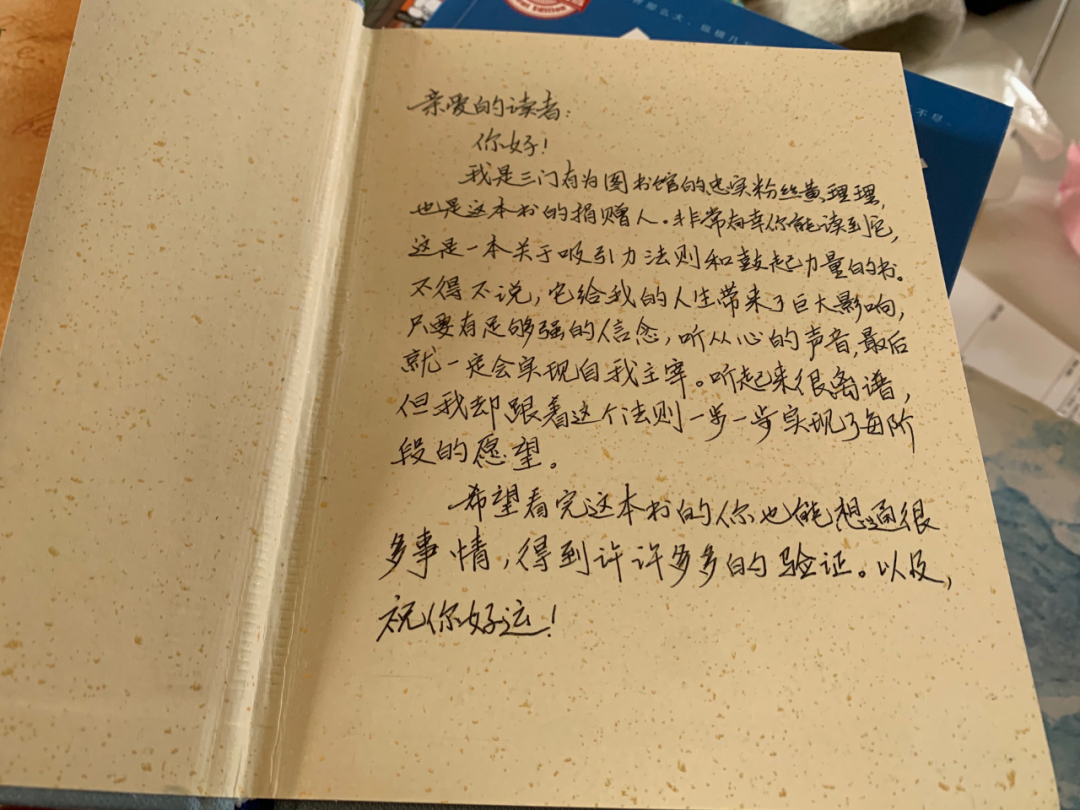 亲爱的读者：
你好！
我是三门有为图书馆的忠实粉丝黄理理，
也是这本书的捐赠人。非常有幸你能读到它，
这是一本关于吸引力法则和鼓起力量的书。
不得不说，它给我的人生带来了巨大影响，
只要有足够强的信念，听从心的声音，最后
就一定会实现自我主宰。听起来很离谱，
但我却跟着这个法则一步一步实现了每阶
段的愿望。
希望看完这本书的你也能想通很
多事情，得到许许多多的验证。以及，
祝你好运！